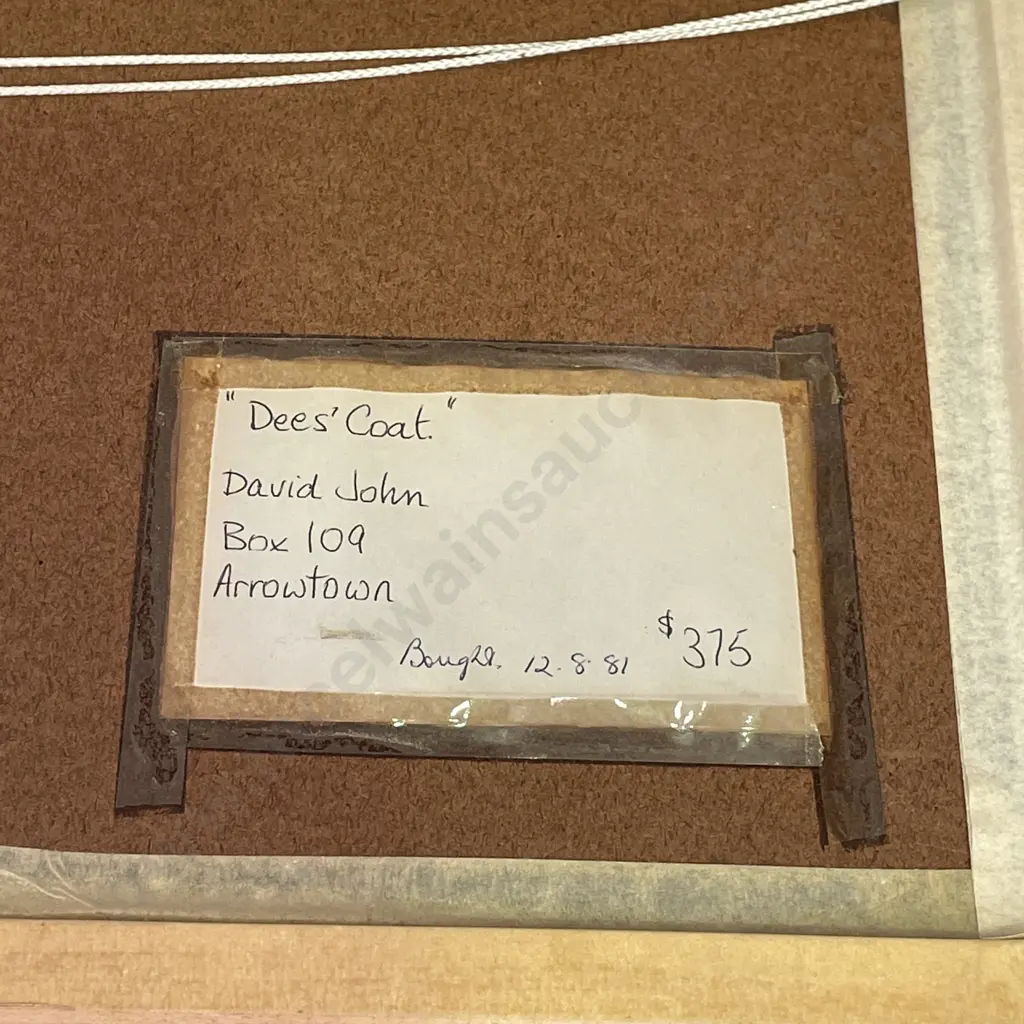 "Dees' Coat."
David John
Box 109
Arrowtown
Bought. 12.8.81 $375
selwainsauc